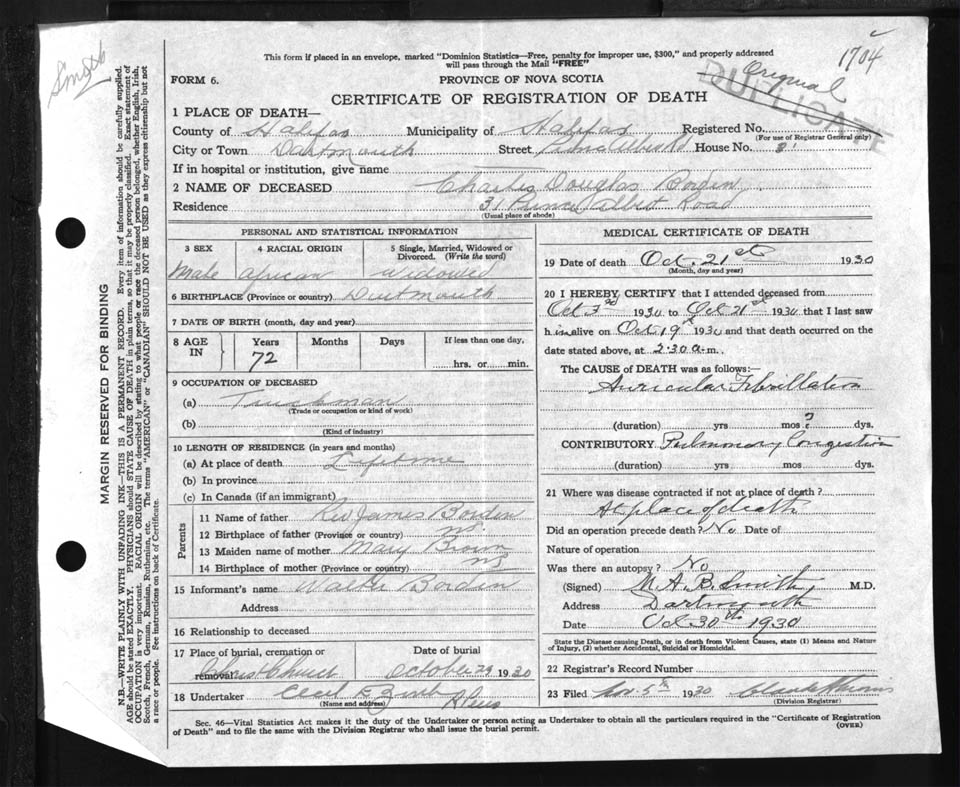 This form if placed in an envelope, marked "Dominion Statistics—Free, penalty for improper use, $300," and properly addressed
will pass through the Mail "FREE"
1704
Original
DUPLICATE
FORM 6.
PROVINCE OF NOVA SCOTIA
CERTIFICATE OF REGISTRATION OF DEATH
1 PLACE OF DEATH—
County of Halifax Municipality of Halifax Registered No.
(For use of Registrar General only)
City or Town Dartmouth Street House No.
If in hospital or institution, give name
2 NAME OF DECEASED Charles Douglas Borden
Residence 31 Prince Albert Road
(Usual place of abode)
PERSONAL AND STATISTICAL INFORMATION
3 SEX 4 RACIAL ORIGIN 5 Single, Married, Widowed or Divorced. (Write the word)
Male African Widowed
6 BIRTHPLACE (Province or country) Dartmouth
7 DATE OF BIRTH (month, day and year)
8 AGE IN Years Months Days If less than one day,
72 hrs. or min.
9 OCCUPATION OF DECEASED
(a) Truckman
(Trade or occupation or kind of work)
(b)
(Kind of industry)
10 LENGTH OF RESIDENCE (in years and months)
(a) At place of death Lifetime
(b) In province
(c) In Canada (if an immigrant)
Parents
11 Name of father Rev James Borden
12 Birthplace of father (Province or country) NS
13 Maiden name of mother Mary Brown
14 Birthplace of mother (Province or country) NS
15 Informant's name Walter Borden
Address
16 Relationship to deceased
17 Place of burial, cremation or removal Date of burial
Christ Church October 24 1930
18 Undertaker Cecil E.
(Name and address)
MEDICAL CERTIFICATE OF DEATH
19 Date of death Oct. 21st 1930
(Month, day and year)
20 I HEREBY CERTIFY that I attended deceased from
Oct 3rd 1930 to Oct 21st 1930 that I last saw
him alive on Oct 19th 1930 and that death occurred on the
date stated above, at 2.30 a.m.
The CAUSE of DEATH was as follows:—
Auricular Fibrillation
(duration) yrs mos ? dys.
CONTRIBUTORY Pulmonary Congestion
(duration) yrs mos dys.
21 Where was disease contracted if not at place of death?
At place of death
Did an operation precede death? No Date of
Nature of operation
Was there an autopsy? No
(Signed) M. A. B. Smith M.D.
Address Dartmouth
Date Oct 30th 1930
State the Disease causing Death, or in death from Violent Causes, state (1) Means and Nature
of Injury, (2) whether Accidental, Suicidal or Homicidal.
22 Registrar's Record Number
23 Filed Nov. 5th 1930
(Division Registrar)
Sec. 46—Vital Statistics Act makes it the duty of the Undertaker or person acting as Undertaker to obtain all the particulars required in the "Certificate of Registration
of Death" and to file the same with the Division Registrar who shall issue the burial permit.
(OVER)
MARGIN RESERVED FOR BINDING
N.B.—WRITE PLAINLY WITH UNFADING INK—THIS IS A PERMANENT RECORD. Every item of information should be carefully supplied.
AGE should be stated EXACTLY. PHYSICIANS should STATE CAUSE OF DEATH in plain terms, so that it may be properly classified. Exact statement of
OCCUPATION is very important. RACIAL ORIGIN will be described by stating to what people or race the deceased person belonged, whether English, Irish,
Scotch, French, German, Russian, Ruthenian, etc. The terms "AMERICAN" or "CANADIAN" SHOULD NOT BE USED as they express citizenship but not
a race or people. See instructions on back of Certificate.